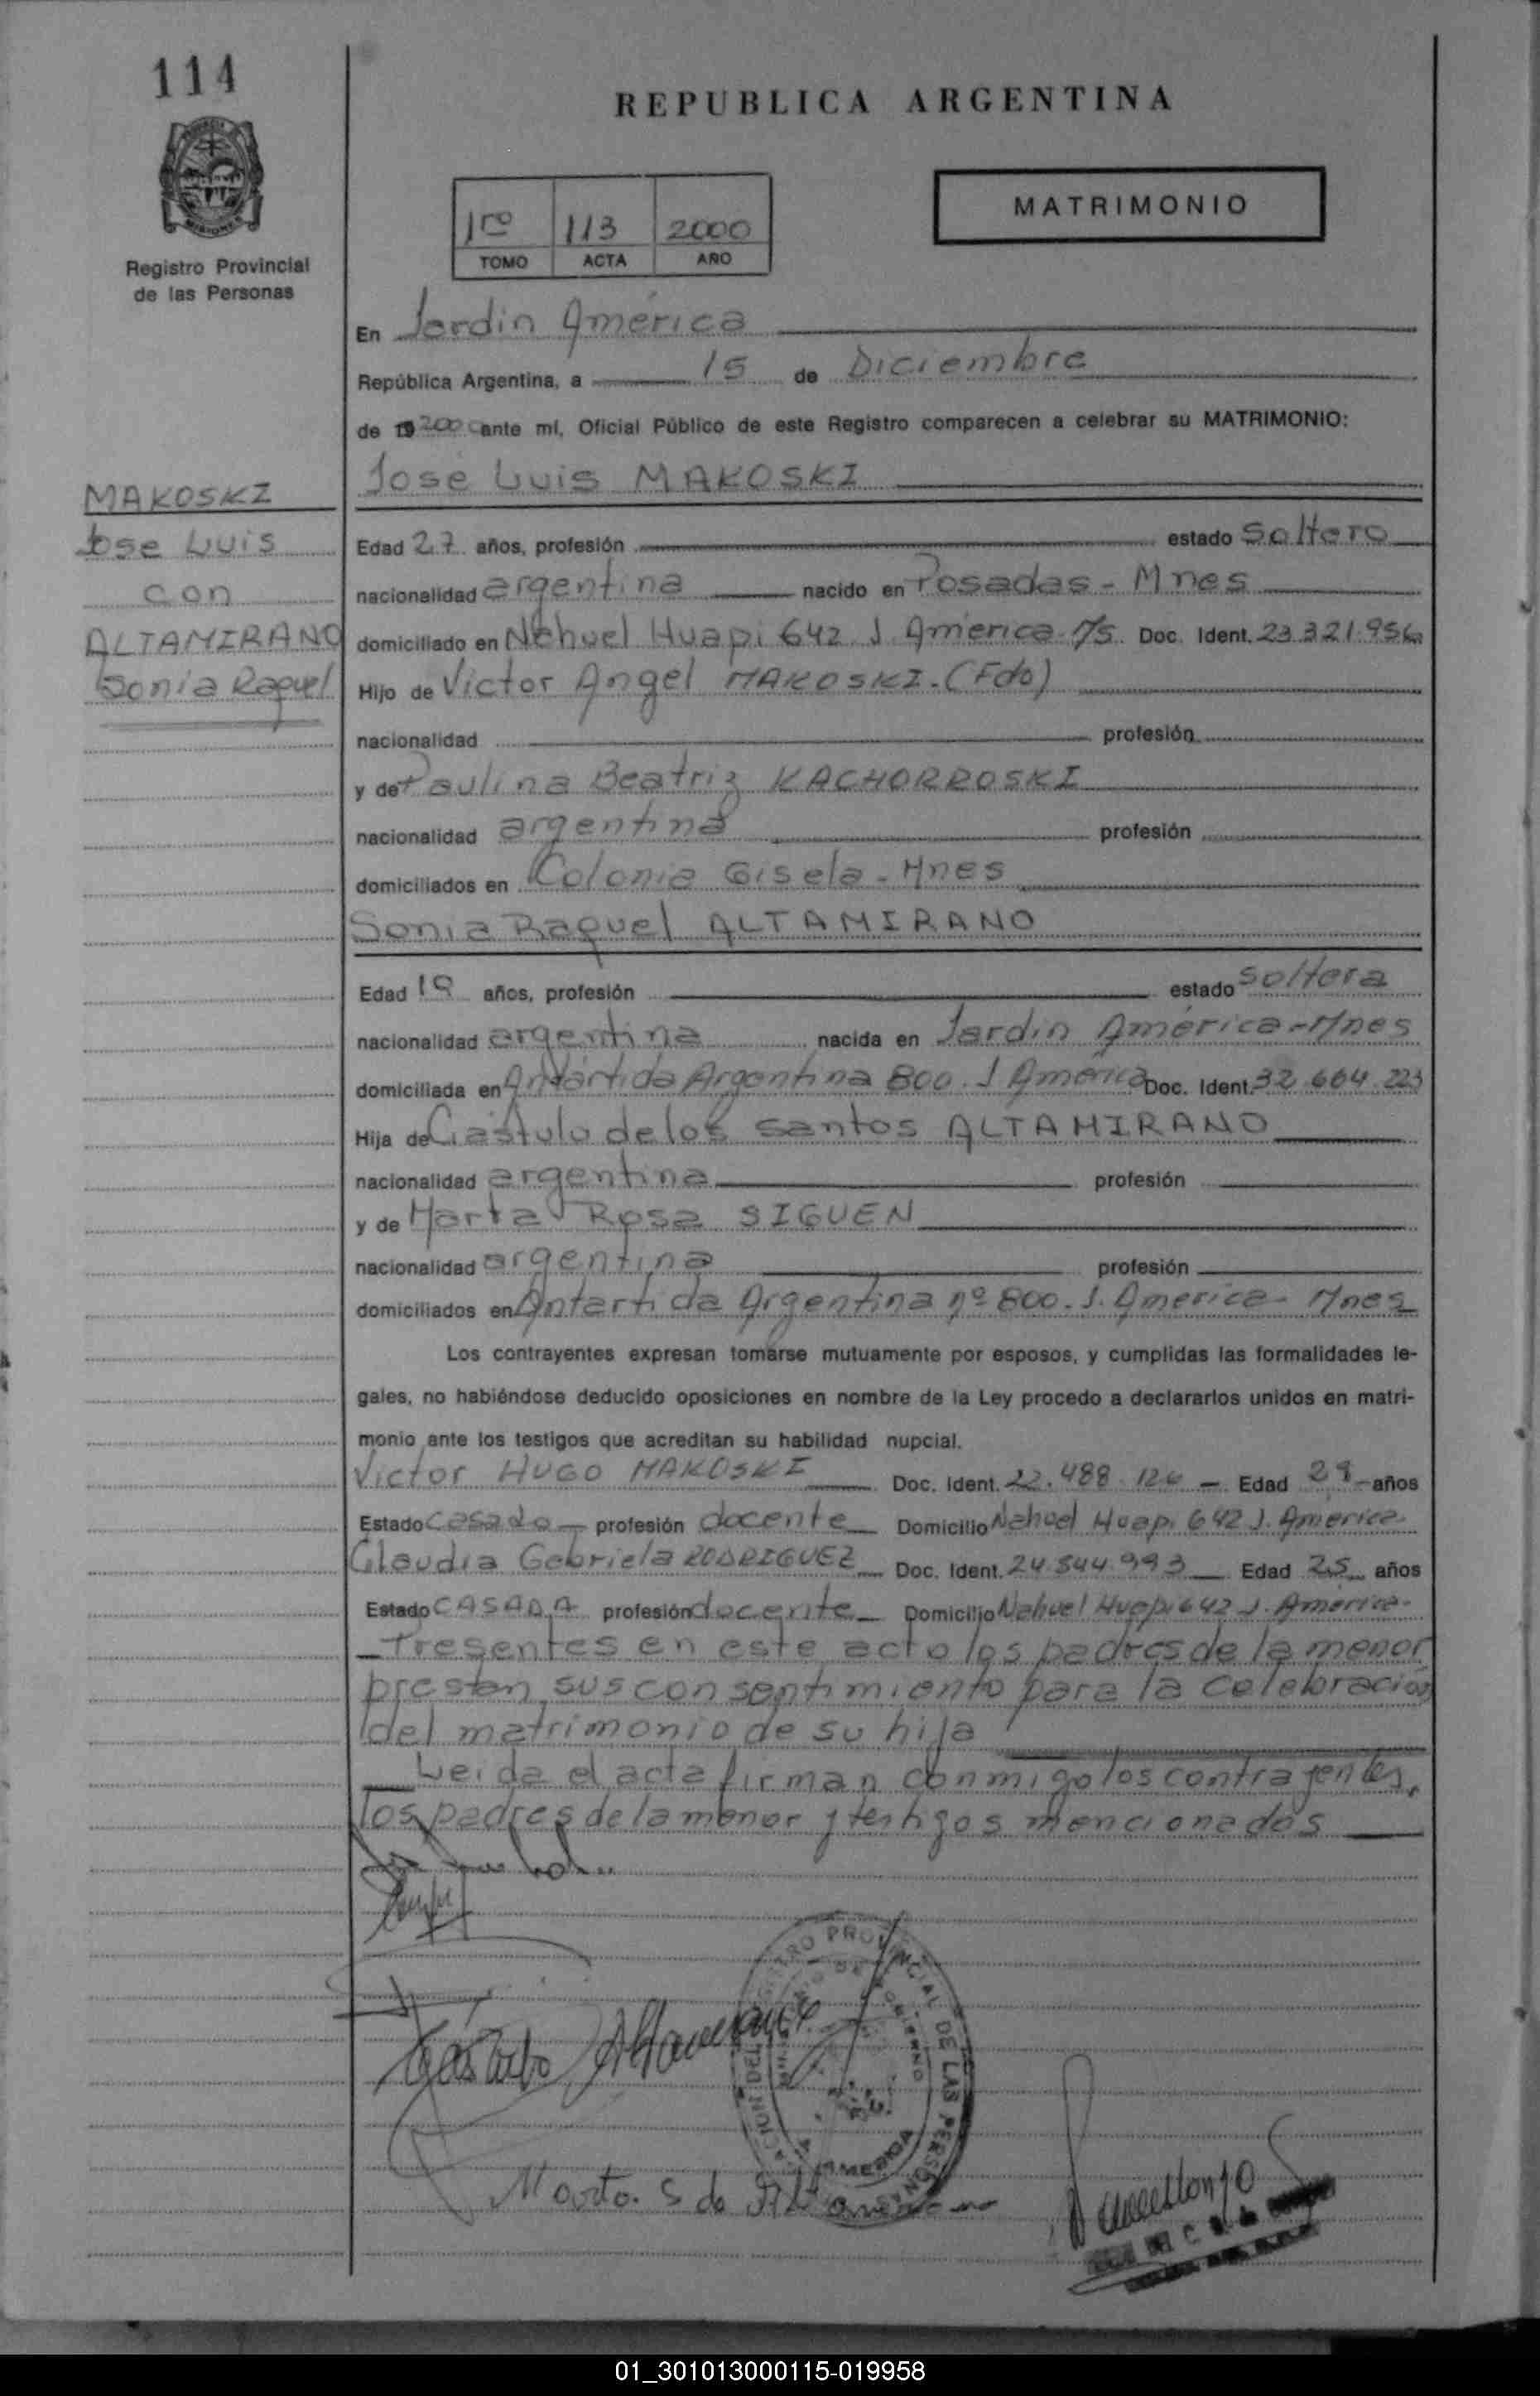 114
REPUBLICA ARGENTINA
1ro 113 2000
TOMO ACTA AÑO
MATRIMONIO
Registro Provincial
de las Personas
En Jardin América
República Argentina, a 15 de Diciembre
de 19 2000 ante mí, Oficial Público de este Registro comparecen a celebrar su MATRIMONIO:
José Luis MAKOSKI
MAKOSKI
Jose Luis
con
ALTAMIRANO
Sonia Raquel
Edad 27 años, profesión estado Soltero
nacionalidad argentina nacido en Posadas - Mnes
domiciliado en Nahuel Huapi 642 J. América Doc. Ident. 23.321.956
Hijo de Victor Angel MAKOSKI. (Fdo)
nacionalidad profesión
y de Paulina Beatriz KACHORROSKI
nacionalidad argentina profesión
domiciliados en Colonia Gisela - Mnes
Sonia Raquel ALTAMIRANO
Edad años, profesión estado soltera
nacionalidad argentina nacida en Jardin América - Mnes
domiciliada en Antártida Argentina 800. J América Doc. Ident. 32.664.223
Hija de Cástulo de los Santos ALTAMIRANO
nacionalidad argentina profesión
y de Marta Rosa SIGUEN
nacionalidad argentina profesión
domiciliados en Antartida Argentina nº 800. J. America - Mnes
Los contrayentes expresan tomarse mutuamente por esposos, y cumplidas las formalidades le-
gales, no habiéndose deducido oposiciones en nombre de la Ley procedo a declararlos unidos en matri-
monio ante los testigos que acreditan su habilidad nupcial.
Victor HUGO MAKOSKI Doc. Ident. 22.488.126 - Edad 29 años
Estado Casado profesión docente Domicilio Nahuel Huapi 642 J. América
Claudia Gabriela RODRIGUEZ Doc. Ident. 24.844.993 Edad 25 años
Estado CASADA profesión docente Domicilio Nahuel Huapi 642 J. América
Presentes en este acto los padres de la menor
prestan sus consentimiento para la celebración
del matrimonio de su hija
Leida el acta firman conmigo los contrayentes,
los padres de la menor y testigos mencionados
Cástulo Altamirano
Marta. S de Altamirano
PROVINCIAL DE LAS PERSONAS
AMERICA
01_301013000115-019958